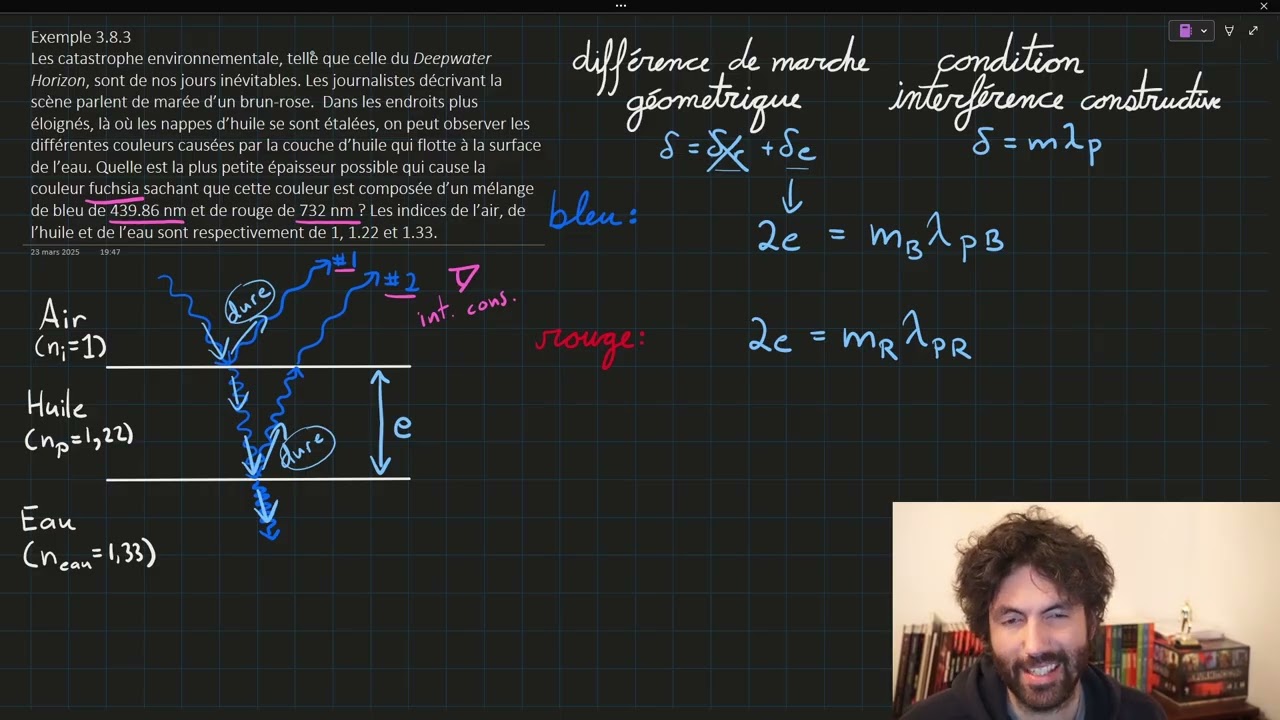 Exemple 3.8.3
Les catastrophe environnementale, telle que celle du Deepwater
Horizon, sont de nos jours inévitables. Les journalistes décrivant la
scène parlent de marée d'un brun-rose. Dans les endroits plus
éloignés, là où les nappes d'huile se sont étalées, on peut observer les
différentes couleurs causées par la couche d'huile qui flotte à la surface
de l'eau. Quelle est la plus petite épaisseur possible qui cause la
couleur fuchsia sachant que cette couleur est composée d'un mélange
de bleu de 439.86 nm et de rouge de 732 nm ? Les indices de l'air, de
l'huile et de l'eau sont respectivement de 1, 1.22 et 1.33.
23 mars 2025 19:47
différence de marche
géometrique
δ = δr + δe
condition
interférence constructive
δ = mλp
bleu:
2e = mBλPB
rouge:
2e = mRλPR
#1
#2
int. cons.
dure
Air
(ni=1)
Huile
(np=1,22)
e
dure
Eau
(neau=1,33)